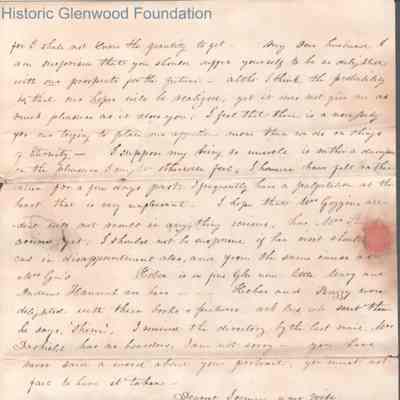 Historic Glenwood Foundation
for I shall not know the quantity to get — My Dear husband I
am surprised that you should suffer yourself to be so delighted
with our prospects for the future — altho I think the probability
is, that our hopes will be realized, yet it does not give me as
much pleasure as it does you, I feel that there is a necessity
for our trying to place our affections more than we do on things
of Eternity, — I suppose my being so unwell is rather a damper
on the pleasure I might otherwise feel, I have felt rather
for a few days past, I frequently have a palpitation at the
heart that is very unpleasant. I hope these Mrs
will not result in any thing serious, has Mrs
yet, I should not be surprised if her most
end in disappointment also, and from the same cause as
Mrs G's Helen is in fine now little Mary and
Andrew Hannah are here — Helen and were
delighted with their books & pictures ask who sent them
he says, I received the directory by the last mail, Mrs
has no boarders, I am not sorry — you have
never said a word about your portrait, you must not
fail to have it taken —
your wife